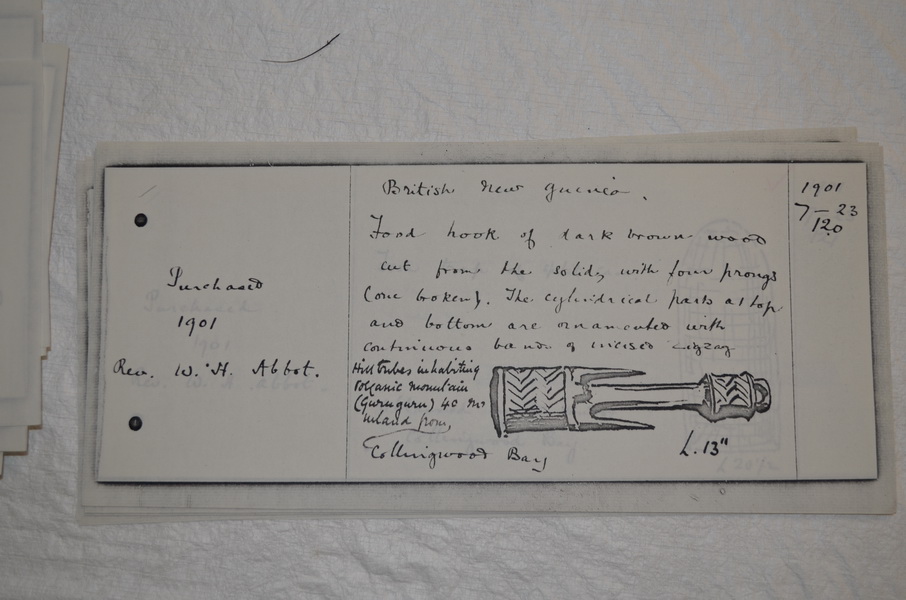 Purchased
1901
Rev. W. H. Abbot.
British New Guinea.
Food hook of dark brown wood
cut from the solid, with four prongs
(one broken). The cylindrical parts at top
and bottom are ornamented with
continuous bands of incised zigzag
Hill tribes inhabiting
volcanic mountain
(Guruguru) 40 ms
inland from
Collingwood Bay
L. 13"
1901
7-23
120